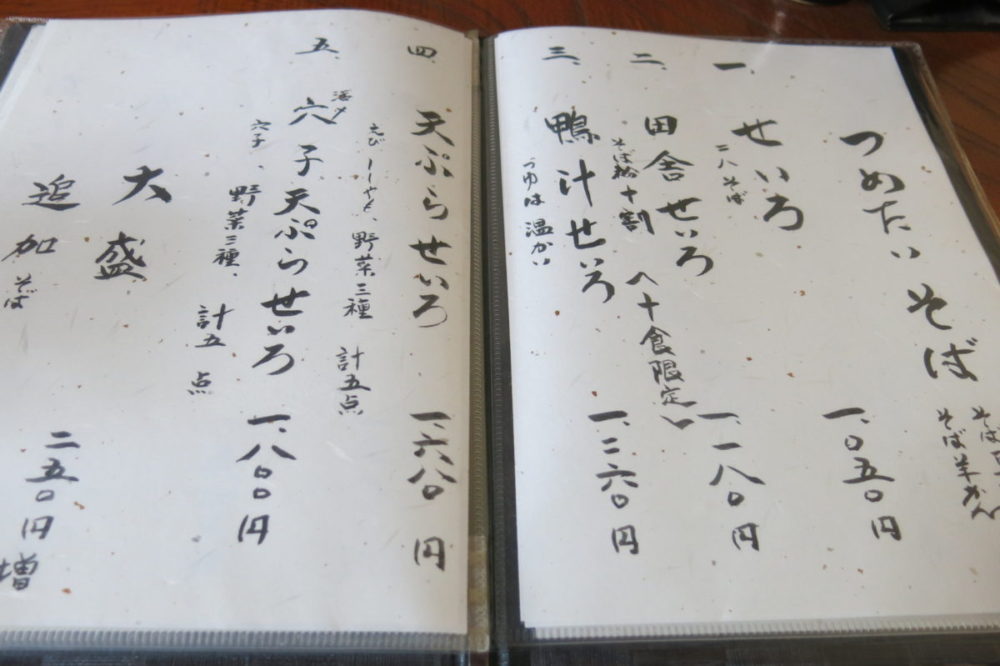 つめたいそば
そば羊かん
一、せいろ 一、〇五〇円
二八そば
二、田舎せいろ 一、一八〇円
そば粉十割 〈十食限定〉
三、鴨汁せいろ 一、二六〇円
つゆは温かい
四、天ぷらせいろ 一、六八〇円
えび、ししとう、野菜三種 計五点
五、穴子天ぷらせいろ 一、八〇〇円
穴子、野菜三種、計五点
大盛
追加そば
二五〇円増